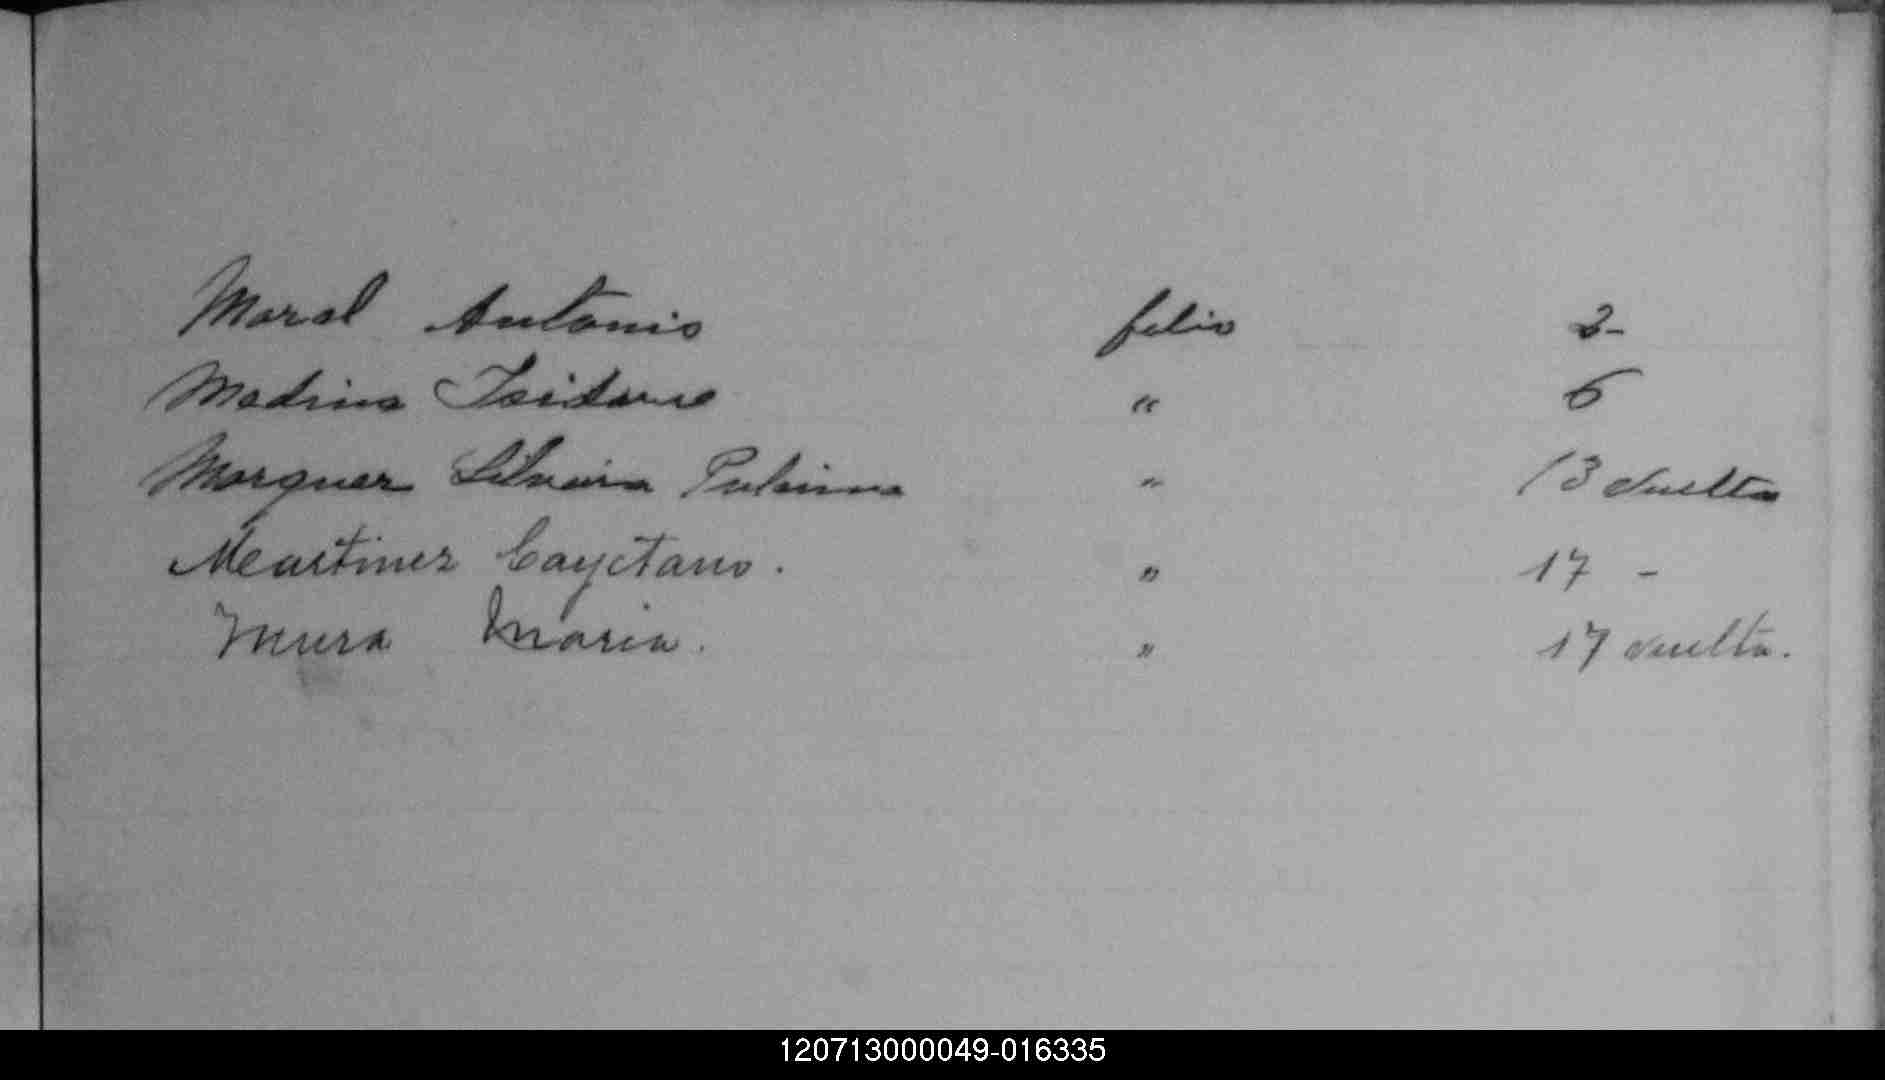 Moral Antonio folio 2-
Medina Isidoro " 6
Marquez Silveira " 13 vuelta
Martinez Cayetano. " 17 -
Mura Maria. " 17 vuelta.
120713000049-016335